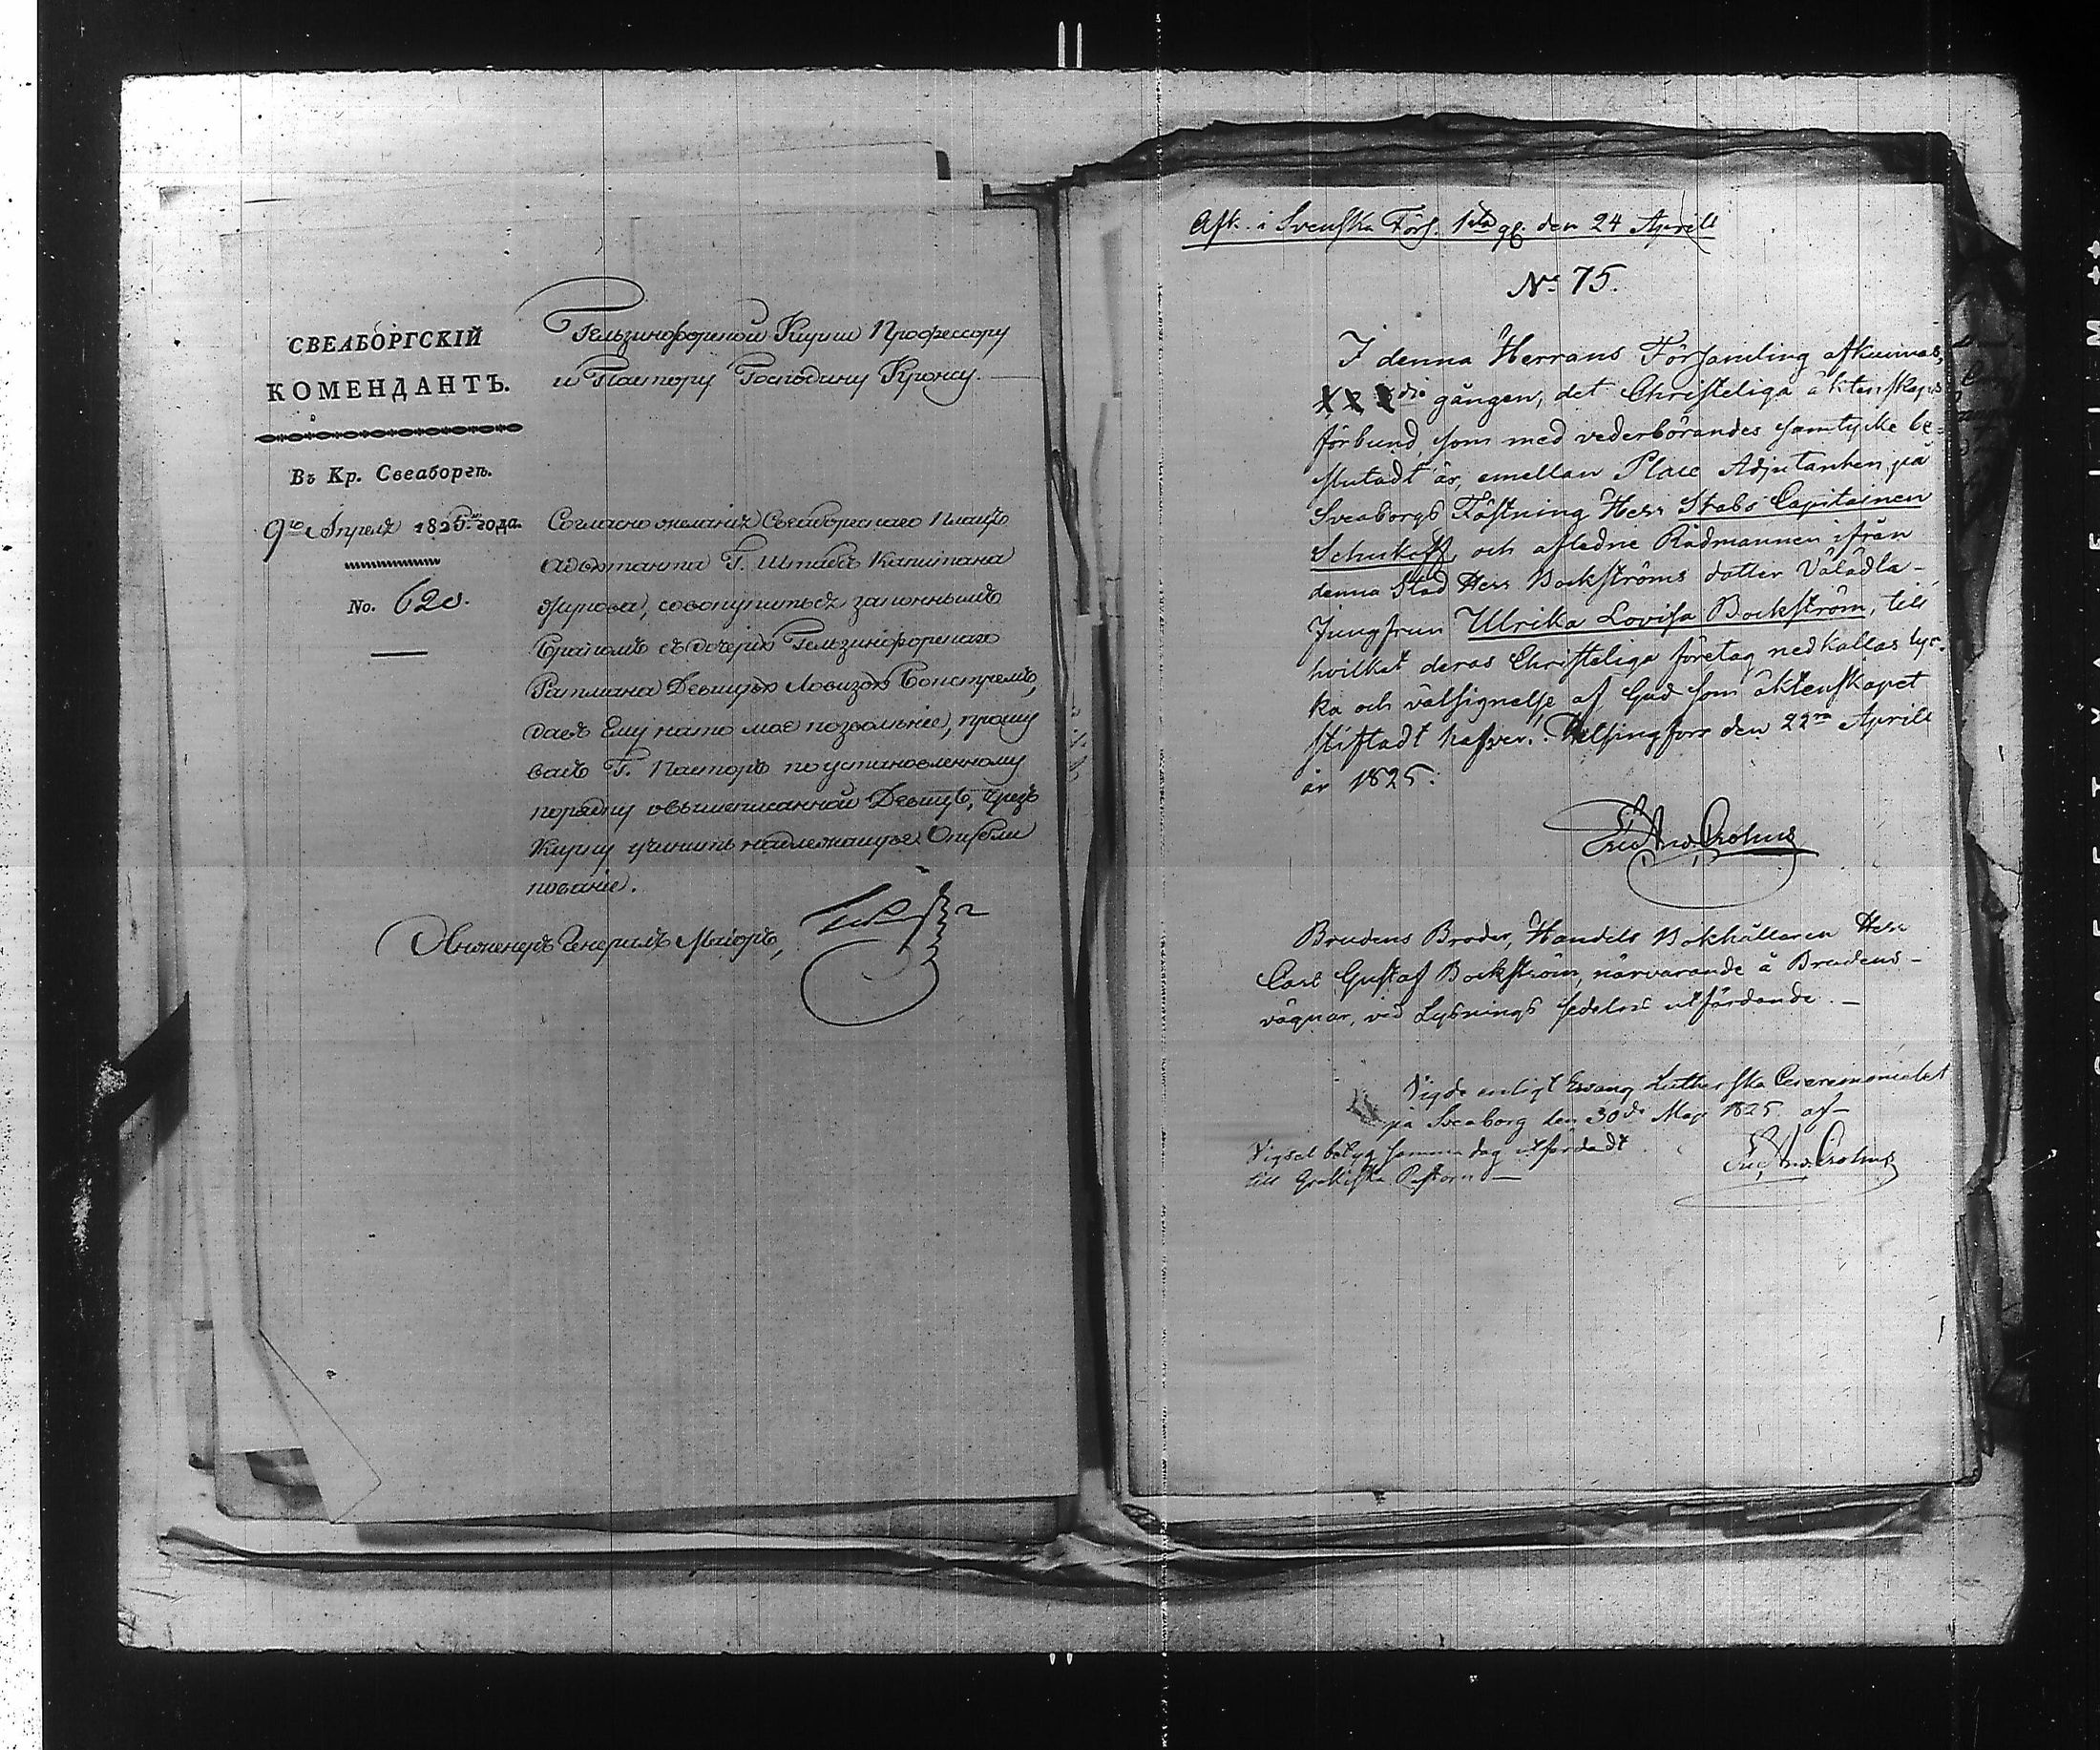 СВЕАБОРГСКІЙ
КОМЕНДАНТЪ.
Въ Кр. Свеаборгѣ.
9го Апрѣля 1825го года.
No. 620.
Гельзинфорской Кирхи Профессору
и Пастору Господину Кронсу.
Согласно желанія Свеаборгскаго Плацъ
адъютанта Г. Штабсъ Капитана
Жукова, совокупиться законнымъ
бракомъ съ дочерью Гельзинфорскаго
Ратмана Девицею Ловизою Бокстремъ,
давъ Ему на то мое позволѣніе, прошу
васъ Г. Пасторъ по установленному
порядку о вышеписанной Девицѣ, чрезъ
Кирку учинить надлежащее Опубли
кованіе.
Инженеръ Генералъ Маіоръ,
Afk. i Svenska Förs. 1sta gg. den 24 Aprill
No 75.
I denna Herrans Församling afkunnas,
X X X die gången, det Christeliga äktenskaps
förbund, som med vederbörandes samtycke be-
slutadt är, emellan Place Adjutanten på
Sveaborgs Fästning Herr Stabs Capitainen
Schukoff, och afledne Rådmannen ifrån
denna Stad Herr Bockströms dotter Välädla
Jungfrun Ulrika Lovisa Bockström, till
hvilket deras Christeliga företag nedkallas lyc-
ka och välsignelse af Gud som äktenskapet
stiftadt hafver. Helsingfors den 22ra Aprill
år 1825.
Fric And. Crohns
Brudens Broder, Handels Bokhållaren Herr
Carl Gustaf Bockström, närvarande å Brudens
vägnar, vid Lysnings sedelns utfärdande. —
Vigde enligt Evang Lutherska Ceremonielet
på Sveaborg den 30de Maji 1825 af
Fric And. Crohns
Vigsel betyg samma dag utfärdadt
till Grekiska Pastorn —